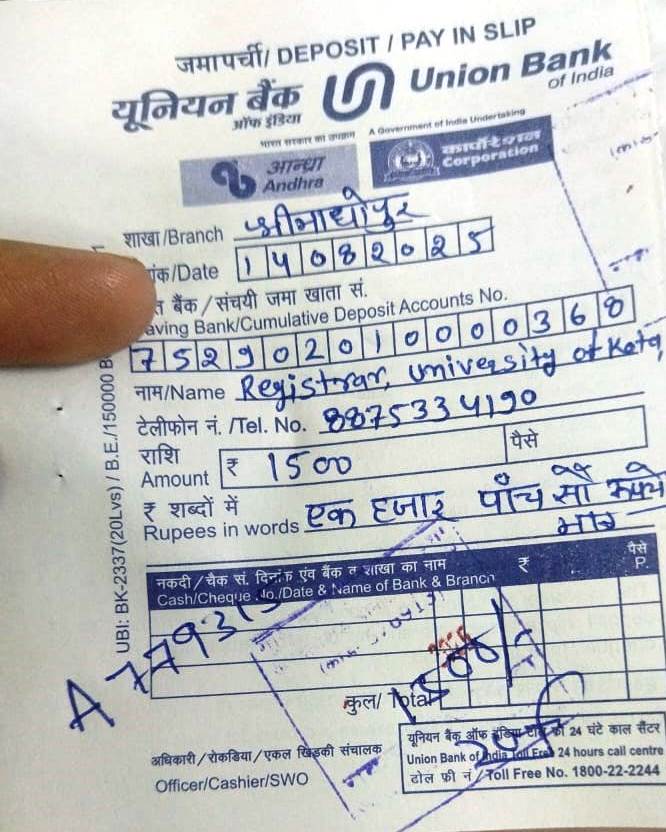 जमापर्ची/ DEPOSIT / PAY IN SLIP
यूनियन बैंक Union Bank
ऑफ इंडिया of India
भारत सरकार का उपक्रम A Government of India Undertaking
आन्ध्रा Andhra
कार्पोरेशन Corporation
शाखा/Branch श्रीमाधोपुर
ांक/Date 14082025
त बैंक / संचयी जमा खाता सं.
aving Bank/Cumulative Deposit Accounts No.
752902010000368
नाम/Name Registrar, University of Kota
टेलीफोन नं. /Tel. No. 8875334190
राशि
Amount ₹ 1500 पैसे
₹ शब्दों में
Rupees in words एक हजार पाँच सौ रूपये
मात्र
नकदी/चैक सं. दिनांक एंव बैंक त शाखा का नाम ₹ पैसे
Cash/Cheque No./Date & Name of Bank & Branch P.
कुल/ Total 1500/-
अधिकारी/रोकडिया/एकल खिड़की संचालक
Officer/Cashier/SWO
यूनियन बैंक ऑफ इंडिया टोल फ्री 24 घंटे काल सैंटर
Union Bank of India Toll Free 24 hours call centre
टोल फ्री नं/Toll Free No. 1800-22-2244
UBI: BK-2337(20Lvs) / B.E./150000 B